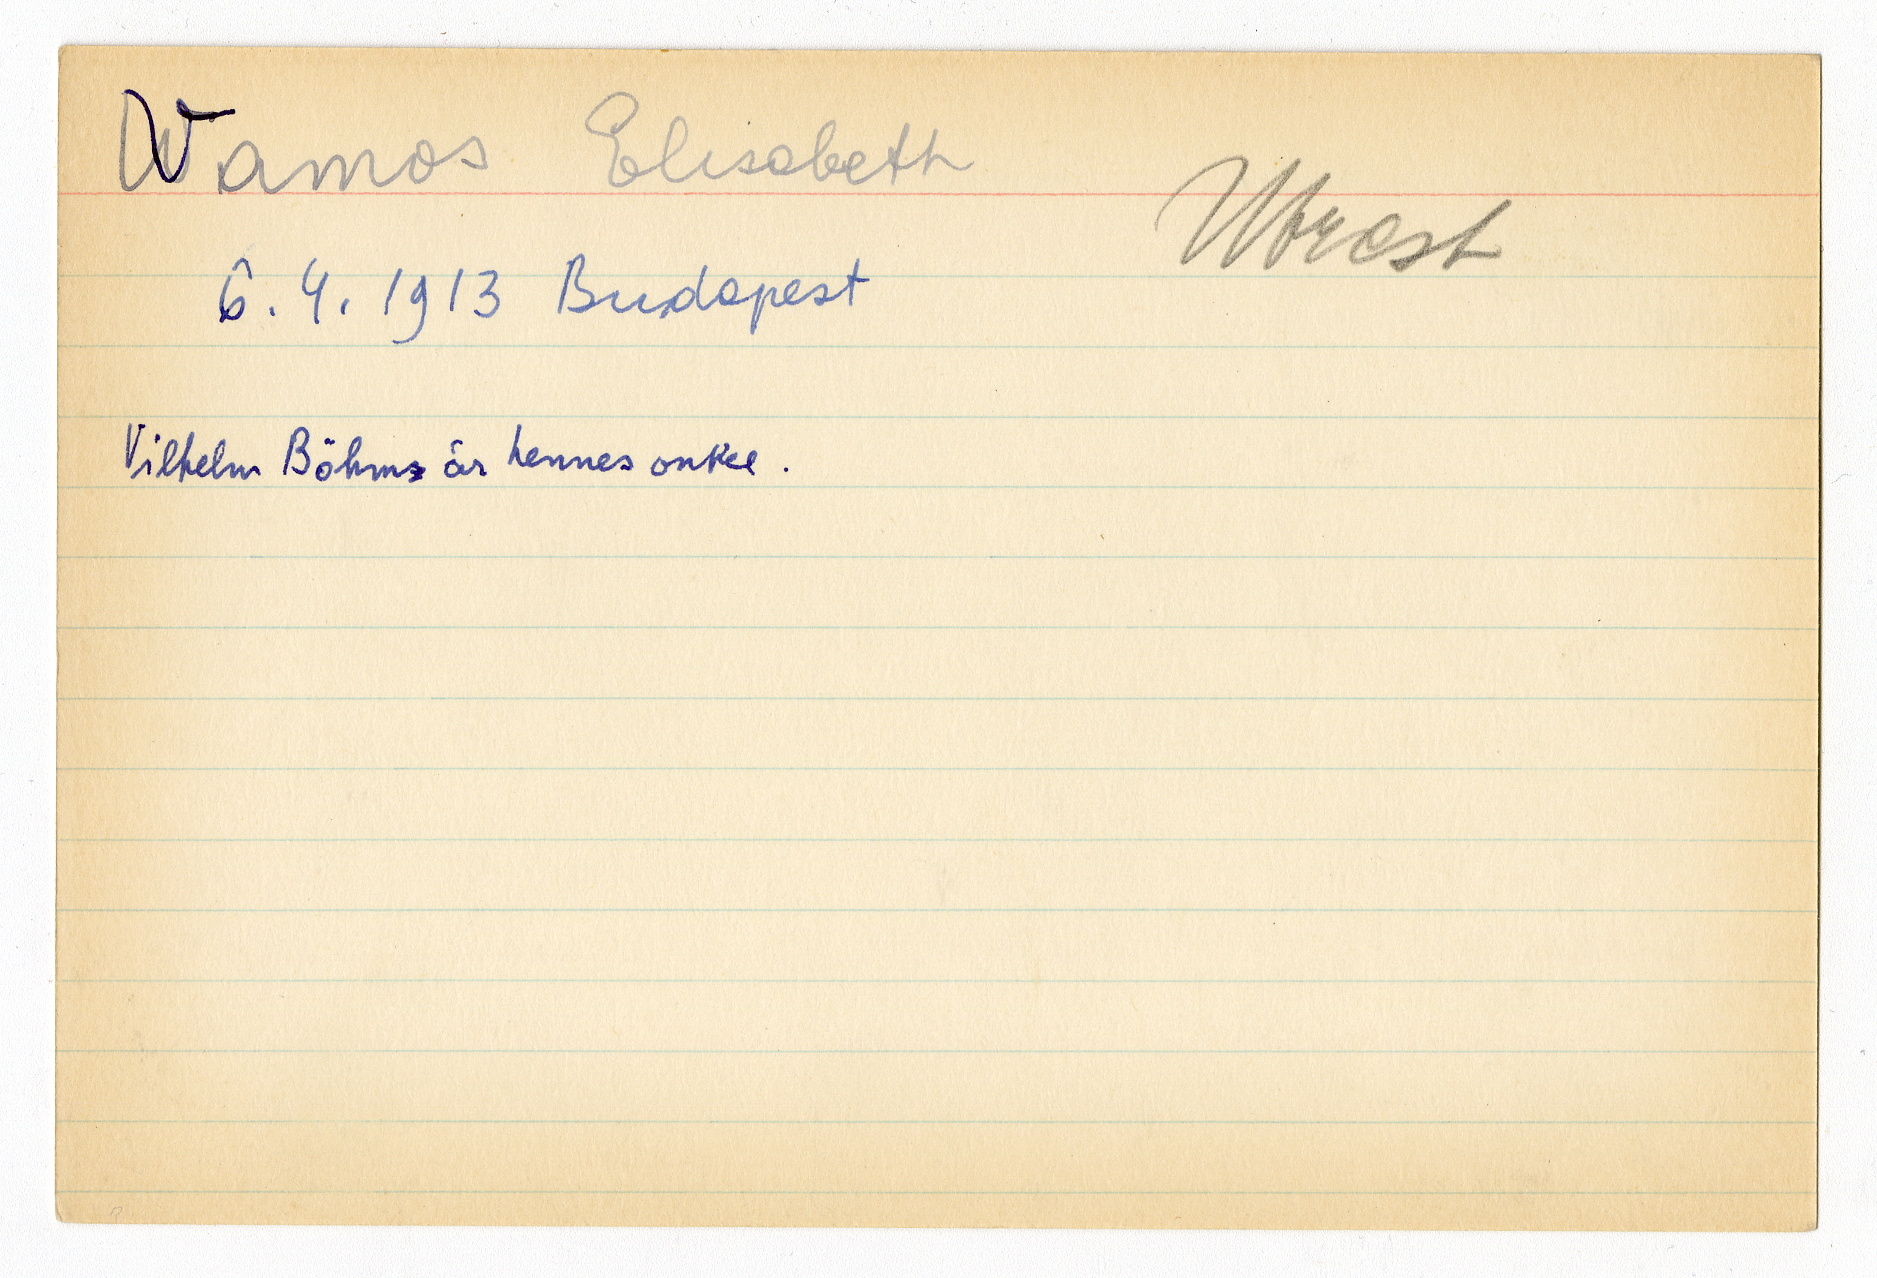 Wamos Elisabeth
Utrest
6.4.1913 Budapest
Vilhelm Böhms är hennes onkel.